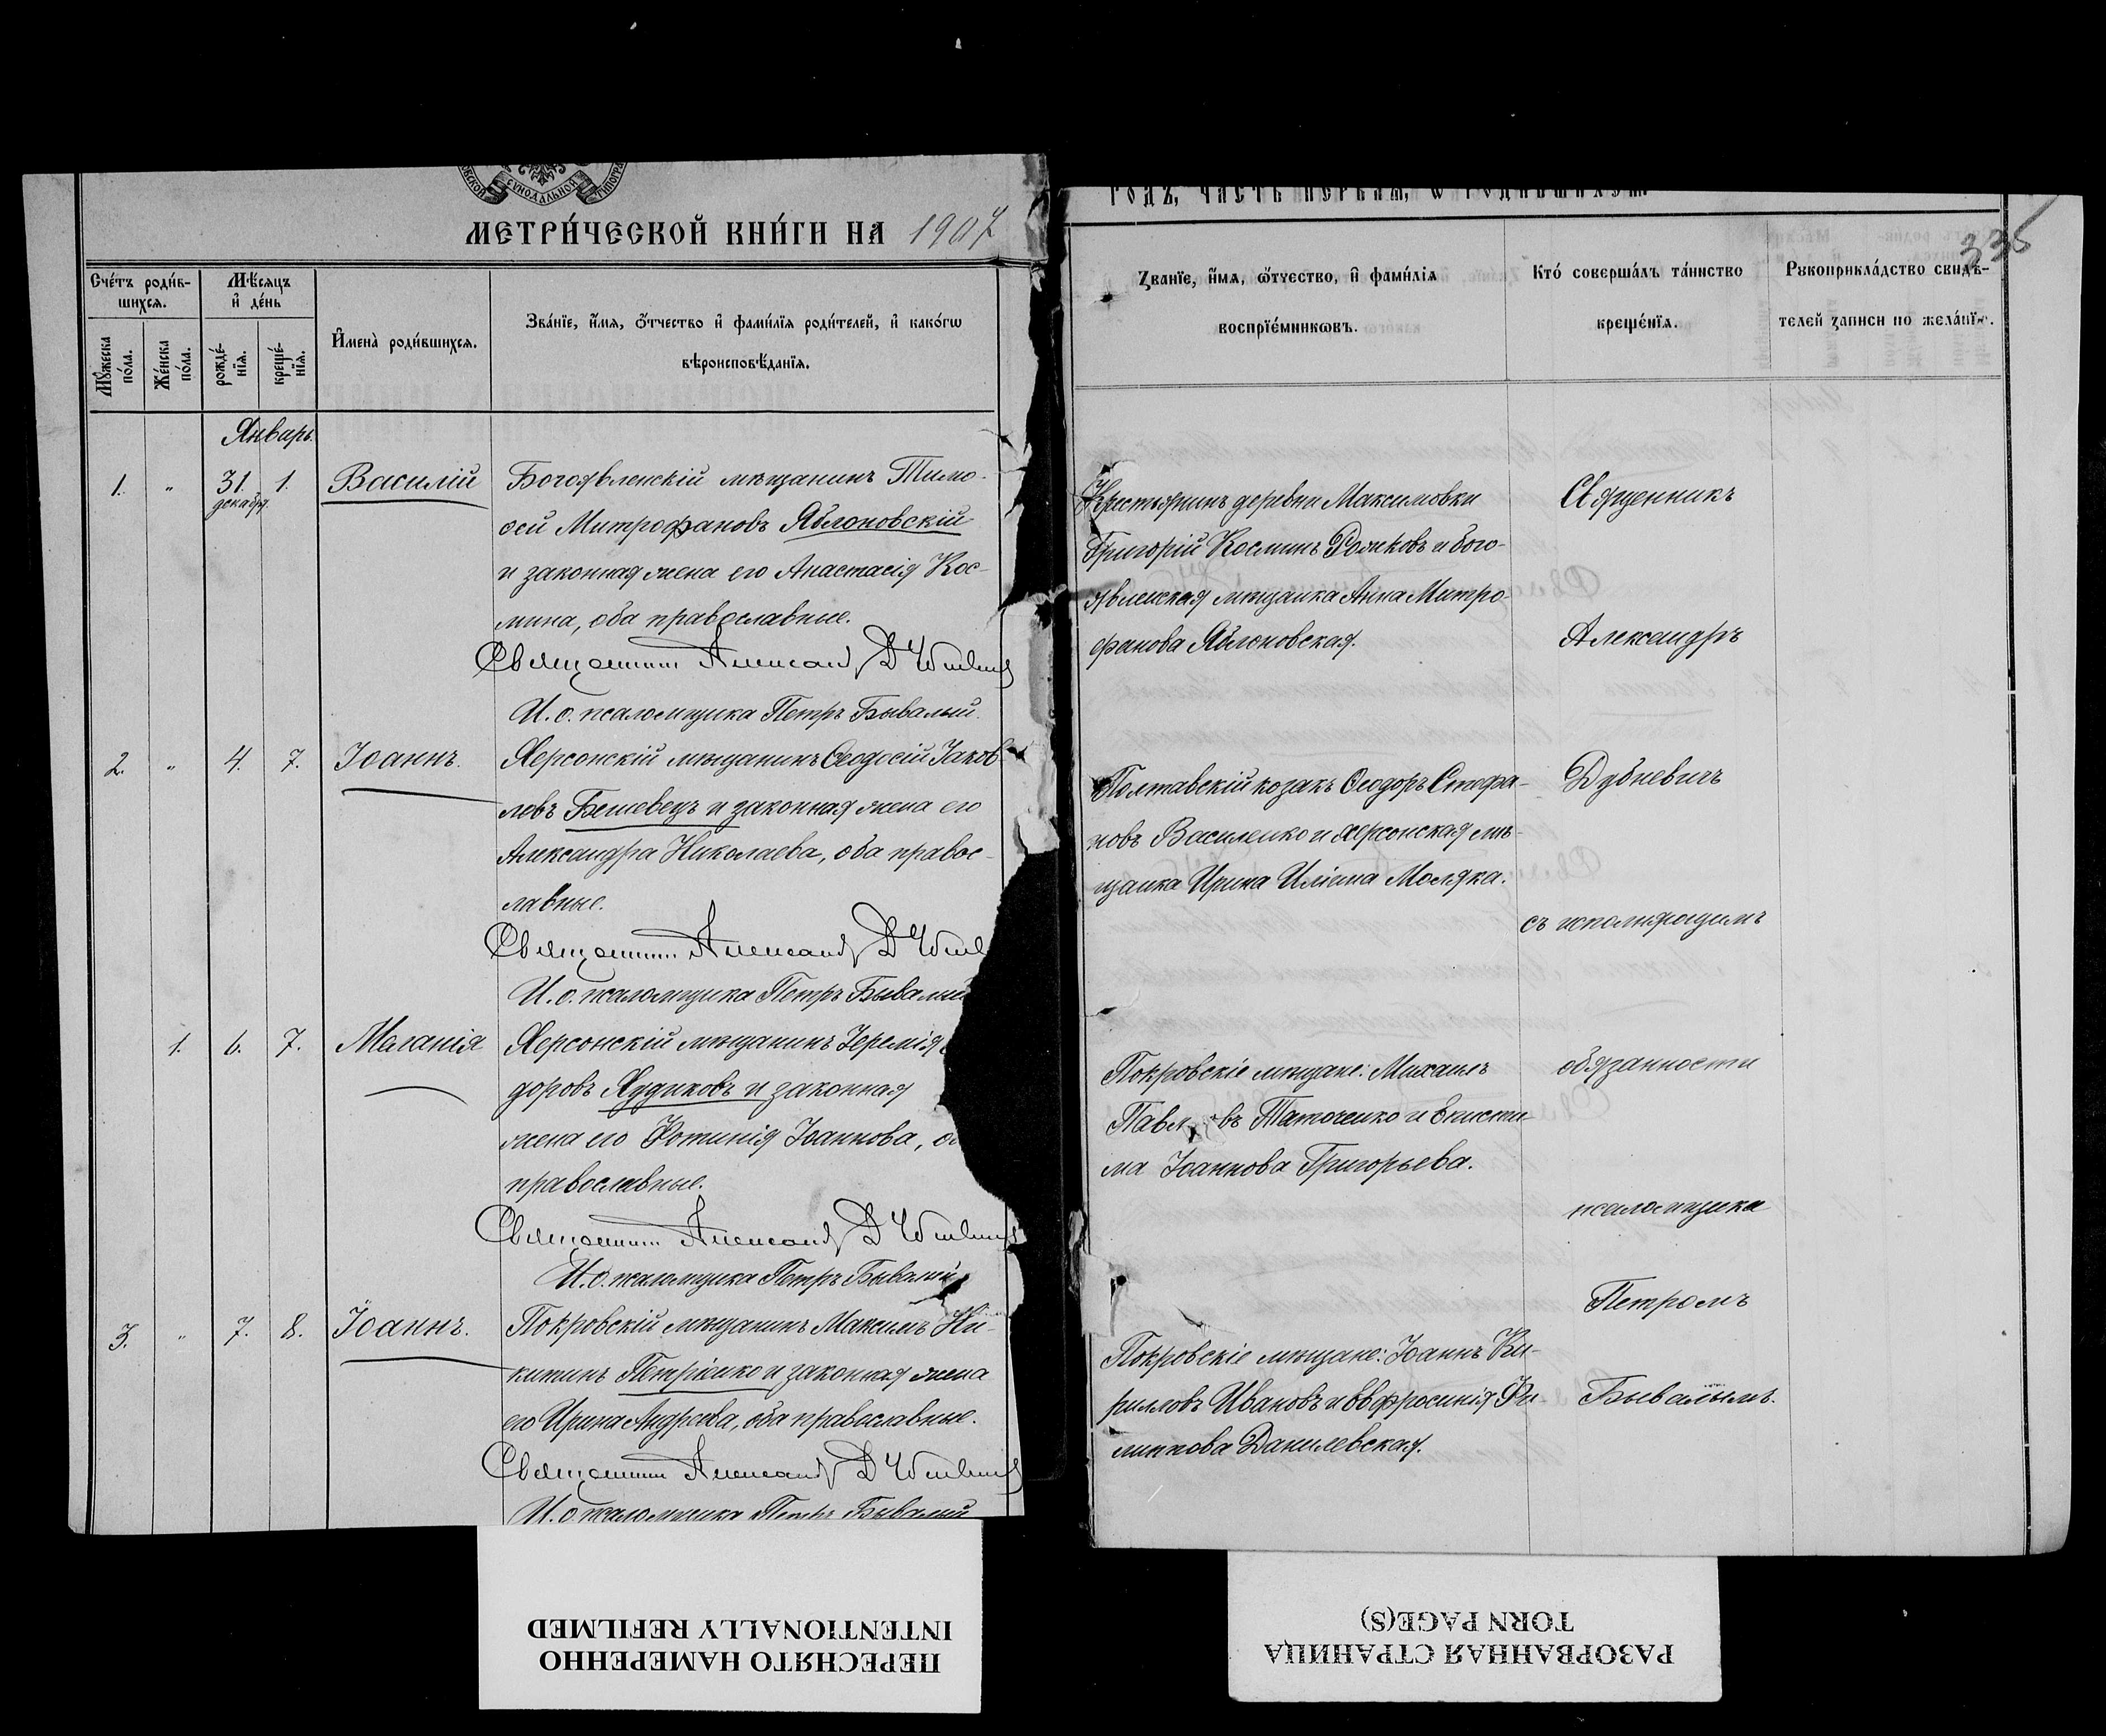 СѴНОДАЛЬНОЙ
МЕТРИ́ЧЕСКОЙ КНИ́ГИ НА 1907
Сче́тъ роди́в-
шихсѧ.
Мꙋ́жеска
по́ла.
Же́нска
по́ла.
Мѣ́сѧцъ
и҆ де́нь
рожде́-
нїѧ.
креще́-
нїѧ.
И҆мена̀ роди́вшихсѧ.
Зва́нїе, и҆́мѧ, ѻ҆́тчество и҆ фами́лїѧ роди́телей, и҆ како́гѡ
вѣроисповѣ́данїѧ.
Январь.
1. " 31 декабр. 1. Василій
Богоявленскій мѣщанинъ Тимо-
ѳей Митрофановъ Яблоновскій
и законная жена его Анастасія Кос-
мина, оба православные.
Священникъ Александръ Дубневичъ
И. о. псаломщика Петръ Бывалый.
2. " 4. 7. Іоаннъ.
Херсонскій мѣщанинъ Ѳеодосій Іаков-
левъ Бешевецъ и законная жена его
Александра Николаева, оба правос-
лавные.
Священникъ Александръ
И. о. псаломщика Петръ Бывалый
1. 6. 7. Маланія
Херсонскій мѣщанинъ Іеремія
доровъ Худиковъ и законная
жена его Фотинія Іоаннова, о
православные.
Священникъ Александръ Дубневичъ
И. о. псаломщика Петръ Бывалый
3. " 7. 8. Іоаннъ.
Покровскій мѣщанинъ Максимъ Ни-
китинъ Петріенко и законная жена
его Ирина Андреева, оба православные.
Священникъ Александръ Дубневичъ
И. о. псаломщика Петръ Бывалый
ГОДЪ, ЧАСТЬ ПЕРВАѦ, Ѡ РОДИВШИХСѦ.
335
Званїе, и҆́мѧ, ѻ҆́тчество, и҆ фами́лїѧ
воспрїе́мникѡвъ.
Кто́ соверша́лъ та́инство
креще́нїѧ.
Рꙋкоприкла́дство свидѣ́-
телей записи по жела́нїю.
Крестьянинъ деревни Максимовки
Григорій Косминъ Рожковъ и бого-
явленская мѣщанка Анна Митро-
фанова Яблоновская.
Полтавскій козакъ Ѳеодоръ Стефа-
новъ Василенко и херсонская мѣ-
щанка Ирина Иліина Моляка.
Покровскіе мѣщане: Михаилъ
Павловъ Таточенко и Еписти-
ма Іоаннова Григорьева.
Покровскіе мѣщане: Іоаннъ Ки-
рилловъ Ивановъ и Евфросинія Фи-
липпова Данилевская.
Священникъ
Александръ
Дубневичъ
съ исполняющимъ
обязанности
псаломщика
Петромъ
Бывалымъ.
ПЕРЕСНЯТО НАМЕРЕННО
INTENTIONALLY REFILMED
РАЗОРВАННАЯ СТРАНИЦА
TORN PAGE(S)